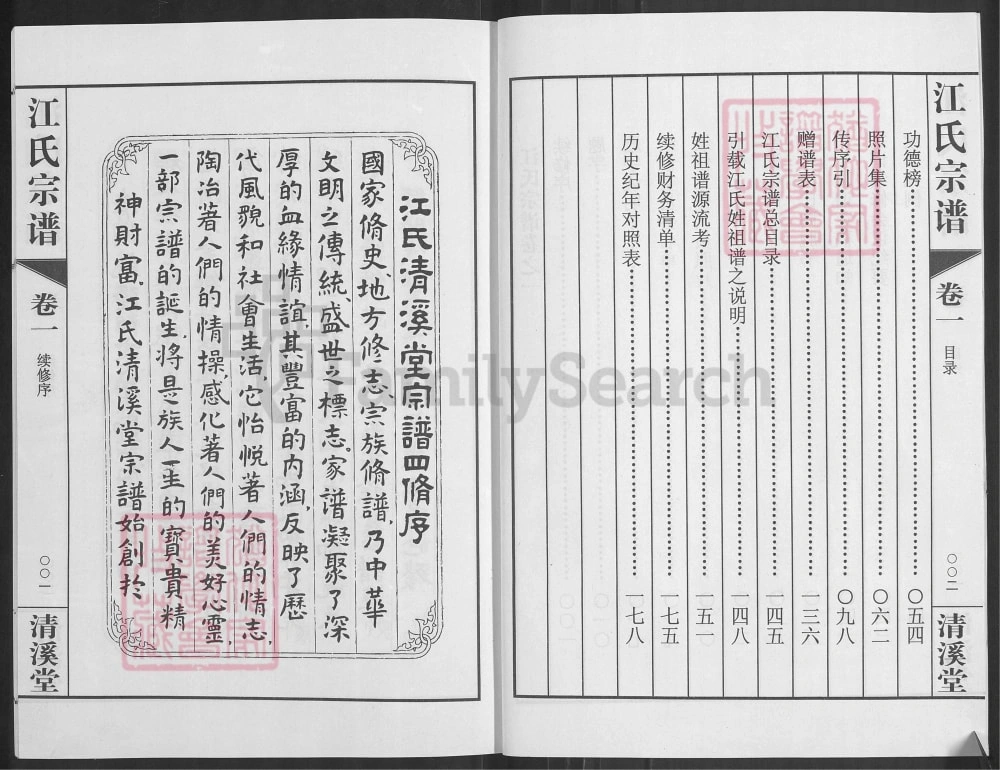 江氏宗谱
卷一
目录
〇〇二
清溪堂
功德榜 〇五四
照片集 〇六二
传序引 〇九八
赠谱表 一三六
江氏宗谱总目录 一四五
引载江氏姓祖谱之说明 一四八
姓祖谱源流考 一五一
续修财务清单 一七五
历史纪年对照表 一七八
江氏清溪堂宗譜四脩序
國家脩史、地方修志、宗族脩譜,乃中華
文明之傳統、盛世之標志。家譜凝聚了深
厚的血緣情誼,其豐富的内涵,反映了歷
代風貌和社會生活,它怡悦著人們的情志,
陶冶著人們的情操,感化著人們的美好心靈
一部宗譜的誕生,將是族人一生的寶貴精
神財富。江氏清溪堂宗譜始創於
江氏宗谱
卷一
续修序
〇〇一
清溪堂
FamilySearch